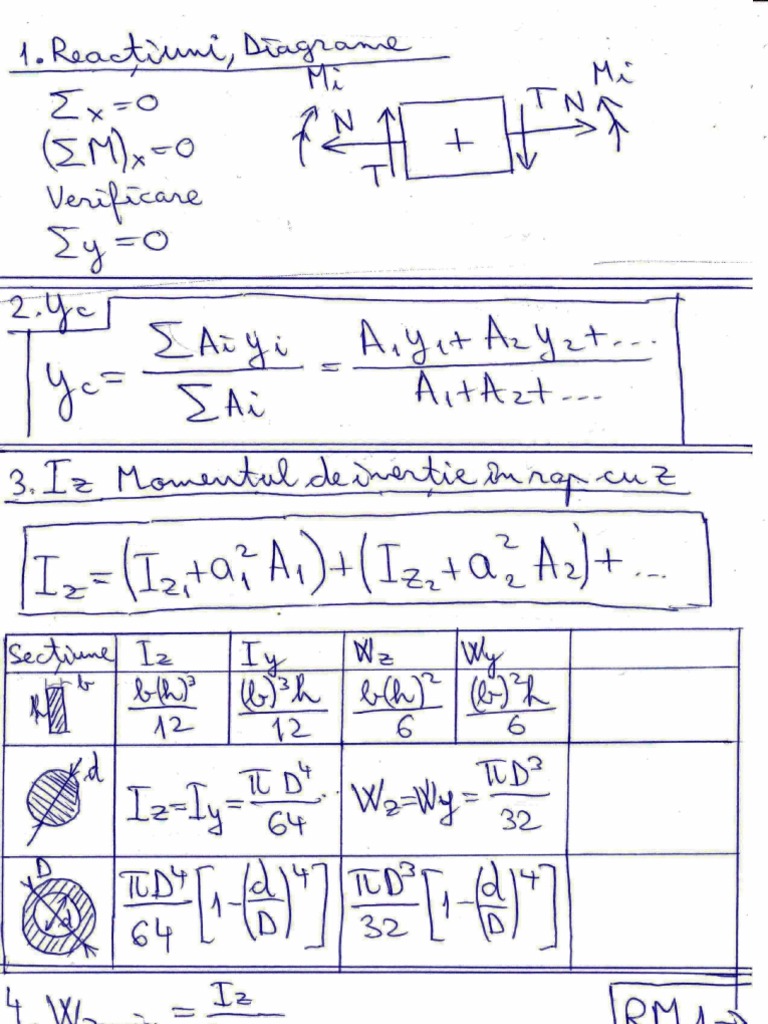 1. Reacțiuni, Diagrame
Σx = 0
(ΣM)x = 0
Verificare
Σy = 0
Mi N T + T N Mi
2. yc
yc = ΣAi yi / ΣAi = A₁y₁ + A₂y₂ + ... / A₁ + A₂ + ...
3. Iz Momentul de inerție în rap cu z
Iz = (Iz₁ + a₁² A₁) + (Iz₂ + a₂² A₂) + ...
Secțiune Iz Iy Wz Wy
h b b(h)³/12 (b)³h/12 b(h)²/6 (b)²h/6
d Iz = Iy = πD⁴/64 Wz = Wy = πD³/32
D d πD⁴/64 [1 - (d/D)⁴] πD³/32 [1 - (d/D)⁴]
4. W = Iz
RM1→